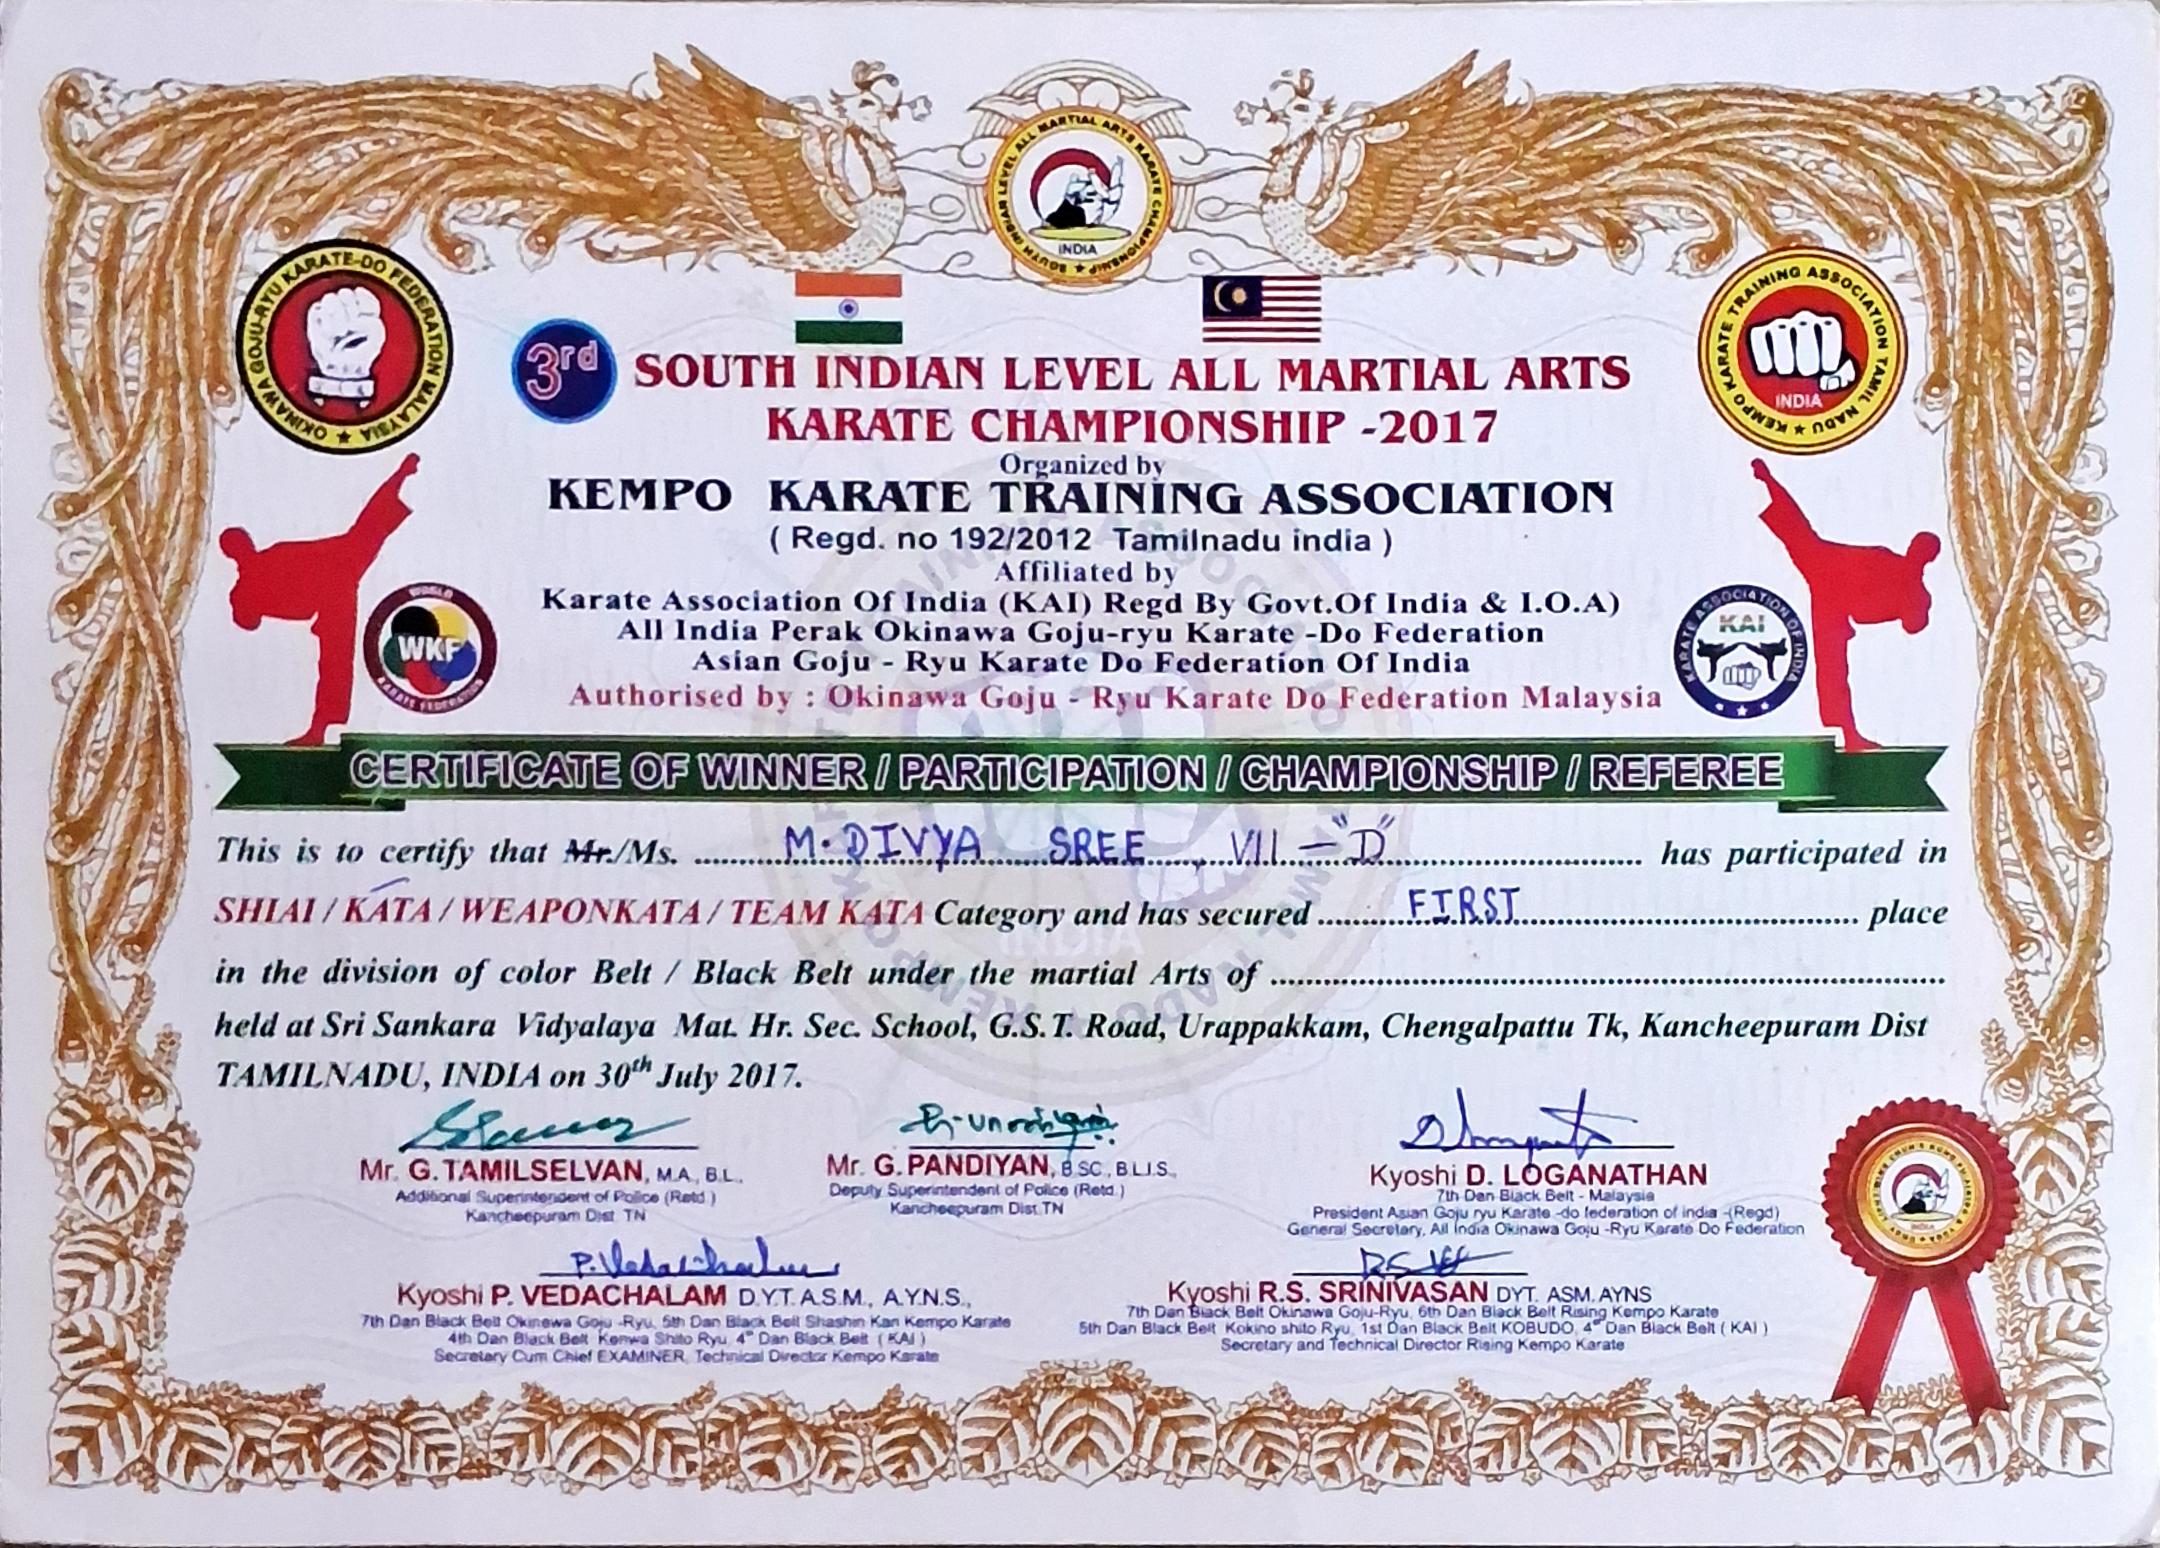 SOUTH INDIAN LEVEL ALL MARTIAL ARTS KARATE CHAMPIONSHIP ★
INDIA
OKINAWA GOJU-RYU KARATE-DO FEDERATION MALAYSIA ★
KEMPO KARATE TRAINING ASSOCIATION TAMIL NADU ★
INDIA
3rd SOUTH INDIAN LEVEL ALL MARTIAL ARTS
KARATE CHAMPIONSHIP -2017
Organized by
KEMPO KARATE TRAINING ASSOCIATION
( Regd. no 192/2012 Tamilnadu india )
Affiliated by
Karate Association Of India (KAI) Regd By Govt.Of India & I.O.A)
All India Perak Okinawa Goju-ryu Karate -Do Federation
Asian Goju - Ryu Karate Do Federation Of India
Authorised by : Okinawa Goju - Ryu Karate Do Federation Malaysia
WORLD KARATE FEDERATION
WKF
KARATE ASSOCIATION OF INDIA
KAI
CERTIFICATE OF WINNER / PARTICIPATION / CHAMPIONSHIP / REFEREE
This is to certify that Mr./Ms. M. DIVYA SREE, VII - "D" has participated in
SHIAI / KATA / WEAPONKATA / TEAM KATA Category and has secured FIRST place
in the division of color Belt / Black Belt under the martial Arts of
held at Sri Sankara Vidyalaya Mat. Hr. Sec. School, G.S.T. Road, Urappakkam, Chengalpattu Tk, Kancheepuram Dist
TAMILNADU, INDIA on 30th July 2017.
Mr. G. TAMILSELVAN, M.A., B.L.,
Additional Superintendent of Police (Retd.)
Kancheepuram Dist. TN
Mr. G. PANDIYAN, B.SC., B.L.I.S.,
Deputy Superintendent of Police (Retd.)
Kancheepuram Dist.TN
Kyoshi D. LOGANATHAN
7th Dan Black Belt - Malaysia
President Asian Goju ryu Karate -do federation of india -(Regd)
General Secretary, All India Okinawa Goju -Ryu Karate Do Federation
P. Vedachalam
Kyoshi P. VEDACHALAM D.Y.T. A.S.M., A.Y.N.S.,
7th Dan Black Belt Okinewa Goju -Ryu, 5th Dan Black Belt Shashin Kan Kempo Karate
4th Dan Black Belt Kenwa Shito Ryu, 4th Dan Black Belt ( KAI )
Secretary Cum Chief EXAMINER, Technical Director Kempo Karate
Kyoshi R.S. SRINIVASAN DYT. ASM. AYNS
7th Dan Black Belt Okinawa Goju-Ryu, 6th Dan Black Belt Rising Kempo Karate
5th Dan Black Belt Kokino shito Ryu, 1st Dan Black Belt KOBUDO, 4th Dan Black Belt ( KAI )
Secretary and Technical Director Rising Kempo Karate
INDIA